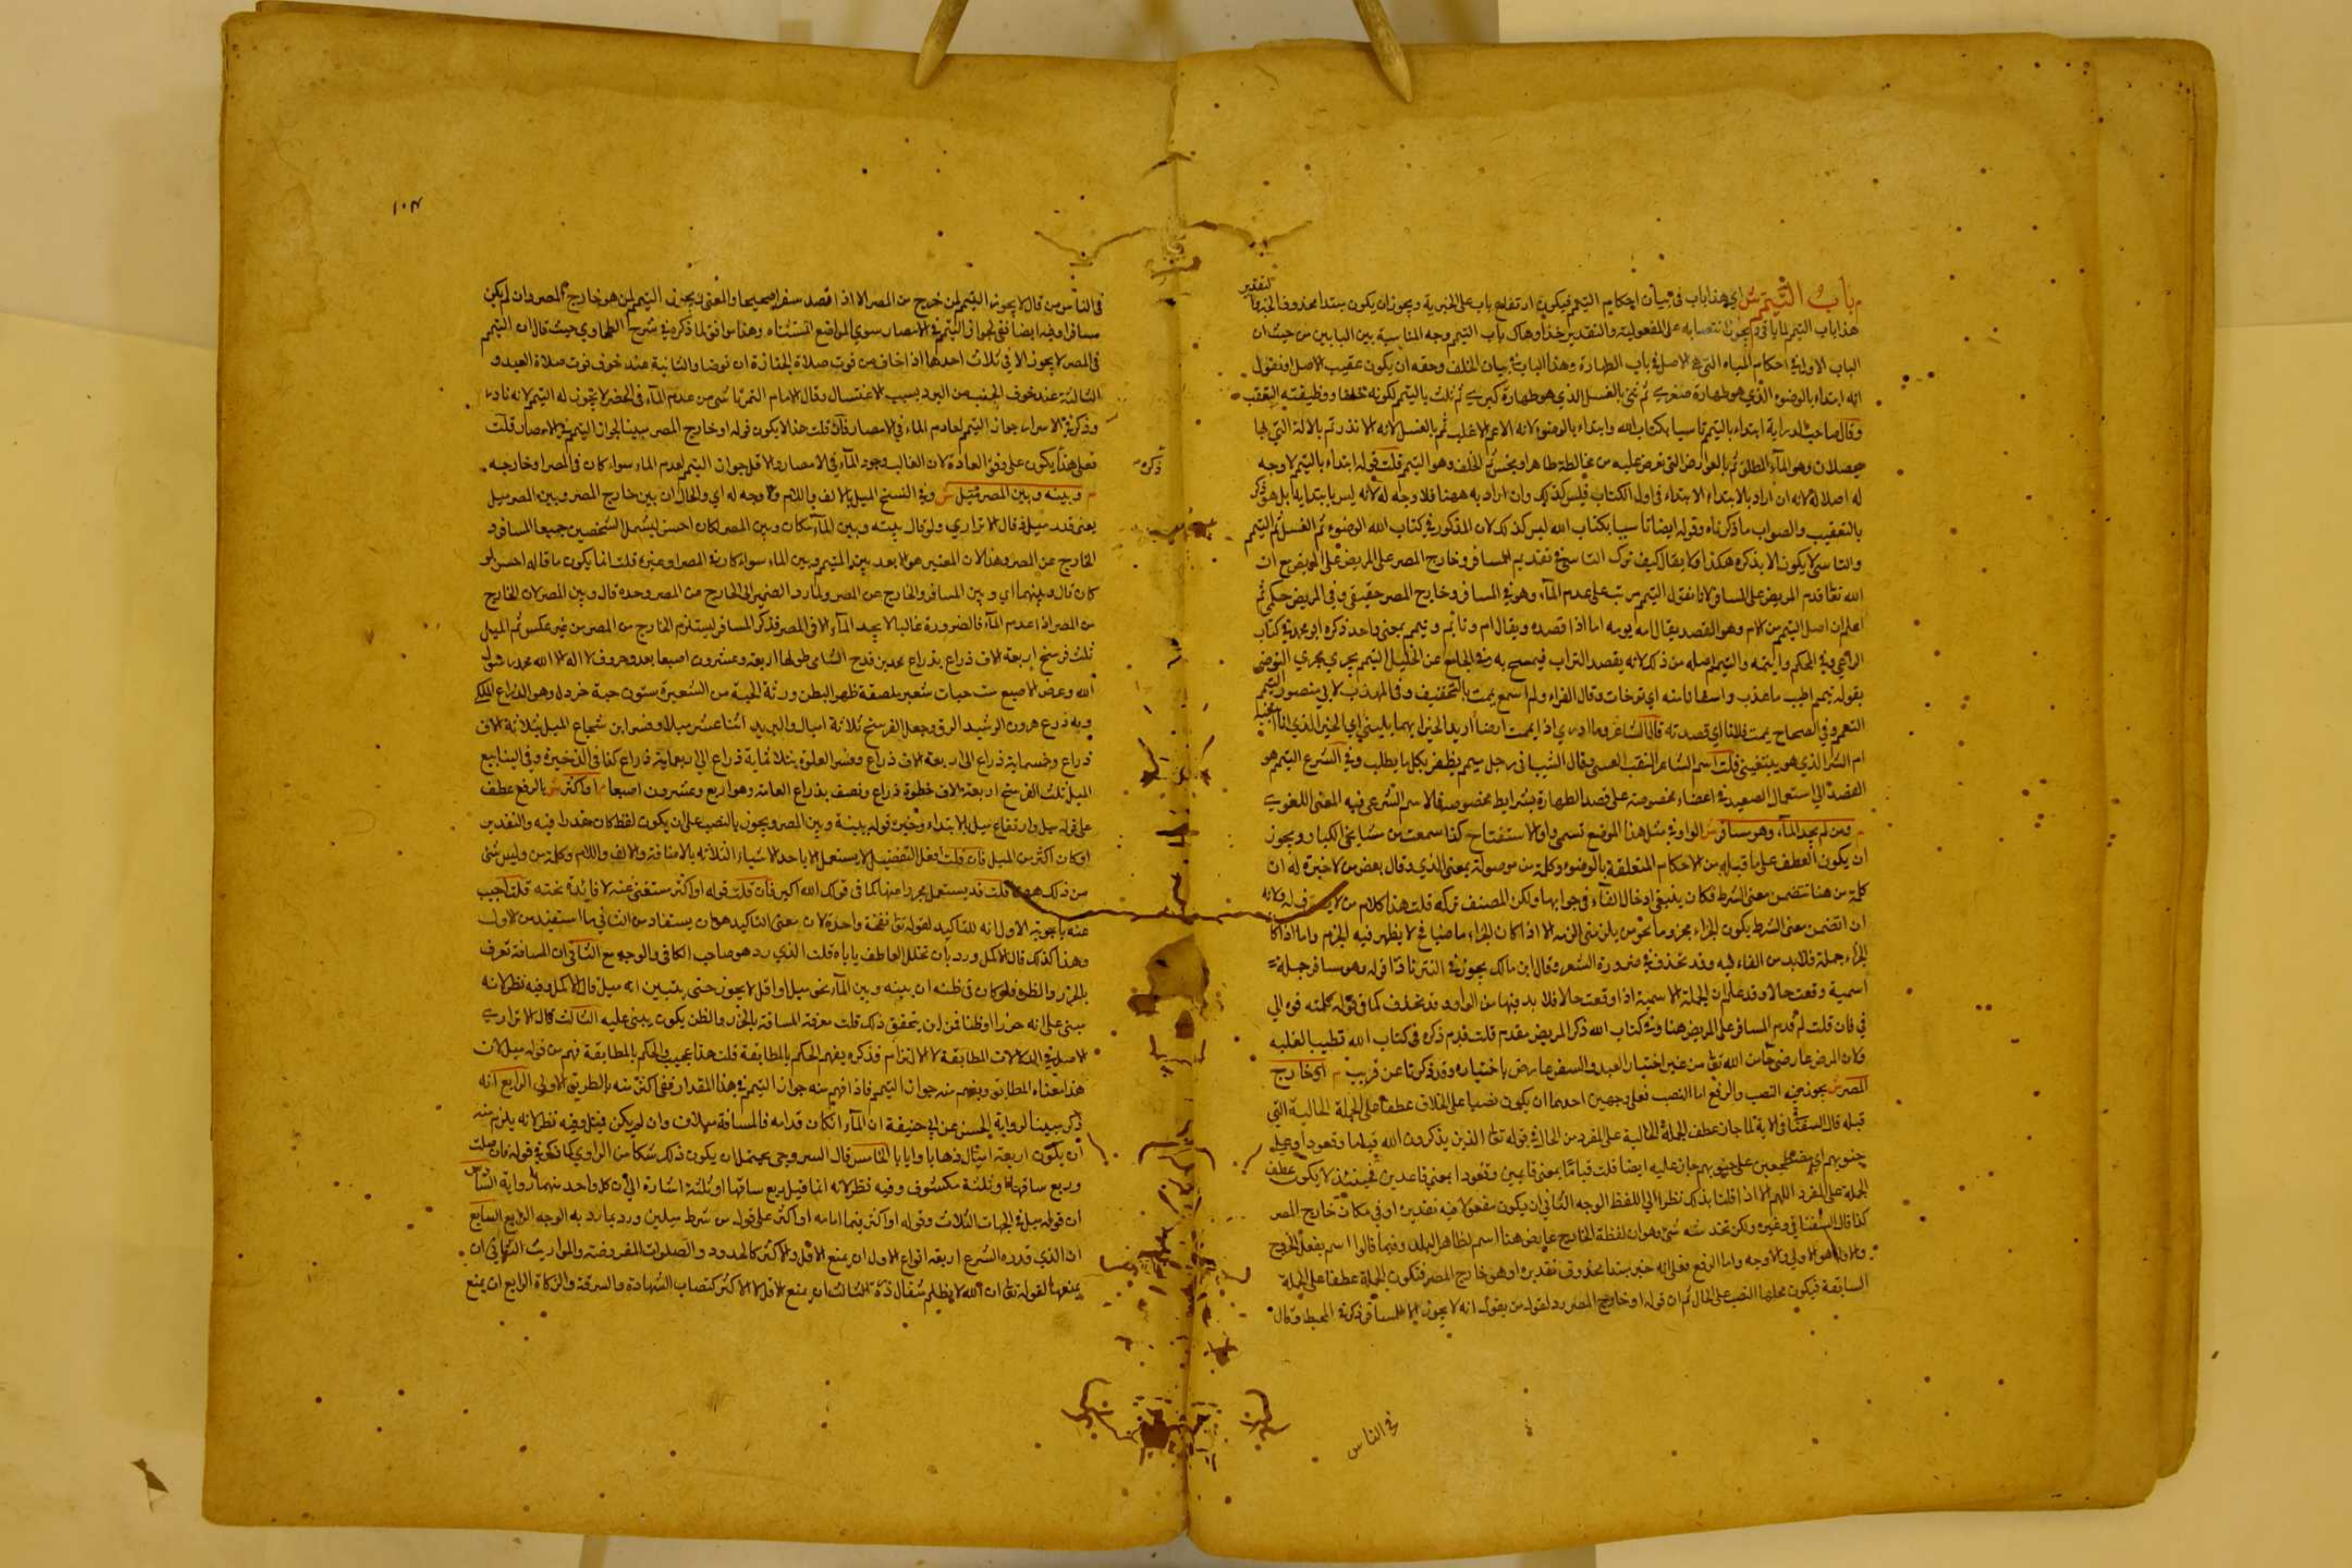 م باب التيمم ش اي هذا باب في بيان احكام التيمم فيكون ارتفاع باب على الخبرية ويجوز ان يكون مبتدا محذوف الخبر
التقدير
هذا باب التيمم لما ياتي ويجوز انتصابه على المفعولية والتقدير خذ او هاك باب التيمم وجه المناسبة بين البابين من حيث ان
الباب الاول في احكام المياه التي هي الاصل في باب الطهارة وهذا الباب في بيان الخلف وحقه ان يكون عقيب الاصل او نقول
انه ابتداء بالوضوء الذي هو طهارة صغرى ثم ثنى بالغسل الذي هو طهارة كبرى ثم ثلث بالتيمم لكونه خلفا ووظيفته التعقب
وقال صاحب الدراية ابتداء بالتيمم تاسيا بكتاب الله وابتداء بالوضوء لانه الاعم الاغلب ثم بالغسل لانه الاندر ثم بالآلة التي بها
يحصلان وهو الماء المطلق ثم بالعوارض التي تعرض عليه من مخالطة طاهر او نجس ثم الخلف وهو التيمم قلت قوله ابتداء بالتيمم لا وجه
له اصلا لانه ان اراد بالابتداء الابتداء في اول الكتاب فليس كذلك وان اراد به ههنا فلا وجه له لانه ليس بابتدا به بل هو ذكر
بالتعقيب والصواب ما ذكرناه وقوله ايضا تاسيا بكتاب الله ليس كذلك لان المذكور في كتاب الله الوضوء ثم الغسل ثم التيمم
والتاسي لا يكون الا بذكره هكذا ولا يقال كيف ترك التاسي في تقديم المسافر وخارج المصر على المريض مع ان
الله تعالى قدم المريض على المسافر لانا نقول التيمم مرتب على عدم الماء وهو في المسافر وخارج المصر حقيقي وفي المريض حكمي ثم
اعلم ان اصل التيمم من الام وهو القصد يقال امه يومه اما اذا قصده ويقال ام وتامم وتيمم بمعنى واحد ذكره ابو محمد في كتاب
بقوله تيمم اطيب ما عندك
التعمد وفي الصحاح يممت فلانا اي قصدته قال الشاعر وما ادري اذا يممت ارضا اريد الخير ايهما يليني ااي الخير الذي انا ابتغيه
ام الشر الذي هو يبتغيني قلت اسم الشاعر المثقب العبدي
القصد الى استعمال الصعيد في اعضاء مخصوصة على قصد الطهارة بشرايط مخصوصة فالاسم الشرعي فيه المعنى اللغوي
م ومن لم يجد الماء وهو مسافر ش الواو في مثل هذا الموضع تسمى واو الاستفتاح كذا سمعت من مشايخي الكبار ويجوز
ان يكون العطف على ما قبله من الاحكام المتعلقة بالوضوء وكلمة من موصولة بمعنى الذي وقال بعض من لا خبرة له ان
كلمة من هنا تتضمن معنى الشرط فكان ينبغي ادخال الفاء في جوابها ولكن المصنف تركه قلت هذا كلام من
ان تضمن معنى الشرط يكون الجزاء مجزوما نحو من يكرمني اكرمه الا اذا كان الجزاء ماضيا فح لا يظهر فيه الجزم واما اذا كان
الجزاء جملة فلا بد من الفاء فيه وقد تحذف في ضرورة الشعر وقال ابن مالك يجوز في النثر نادرا قوله وهو مسافر جملة
اسمية وقعت حالا وقد علم ان الجملة الاسمية اذا وقعت حالا فلا بد فيها من الواو وقد تحذف كما في قوله كلمته فوه الى
في فان قلت لم قدم المسافر على المريض هنا وفي كتاب الله ذكر المريض مقدم قلت قدم ذكره في كتاب الله تطييبا لقلبه
فلان المرض عارض جا من الله تعالى من غير اختيار العبد والسفر عارض باختياره وقد ذكرنا عن قريب م او خارج
المصر ش يجوز فيه النصب والرفع اما النصب فعلى وجهين احدهما ان يكون نصبا على الحال عطفا على الجملة الحالية التي
قبله قال السغناقي الاية لما جاز عطف الجملة الحالية على المفرد من الحال في قوله تعالى الذين يذكرون الله قياما وقعودا وعلى
جنوبهم اي مضطجعين على جنوبهم جاز عليه ايضا قلت قياما بمعنى قايمين وقعودا بمعنى قاعدين فحينئذ لا يكون عطف
الجملة على المفرد اللهم الا اذا قلنا بذلك نظرا الى اللفظ الوجه الثاني ان يكون مفعولا فيه تقديره او في مكان خارج المصر
كذا قال السغناقي وغيره ولكن تحته شيء وهو ان لفظة الخارج
والاول هو الاولى والاوجه واما الرفع فعلى انه خبر مبتدا محذوف تقديره او هو خارج المصر فتكون الجملة عطفا على الجملة
السابقة فيكون محلها النصب على الحال ثم ان قوله او خارج المصر رد لقول من يقول انه لا يجوز الا للمسافر ذكره في المحيط وقال
في الناس
١٠٤
في الناس من قال لا يجوز التيمم لمن خرج من المصر الا اذا قصد سفرا صحيحا والمعنى يجوز التيمم لمن هو خارج المصر وان لم يكن
مسافرا وفيه ايضا نفي لجواز التيمم في الامصار سوى المواضع المستثناه وهذا موافق لما ذكره في شرح الطحاوي حيث قال ان التيمم
في المصر لا يجوز الا في ثلاث احدها اذا خاف من فوت صلاة الجنازة ان توضا والثانية عند خوف فوت صلاة العيد و
الثالثة عند خوف الجنب من البرد بسبب الاغتسال وقال الامام التمرتاشي من عدم الماء في الحضر لا يجوز له التيمم لانه نادر
وذكر في الاسرار جواز التيمم لعادم الماء في الامصار فان قلت هذا لا يكون قوله او خارج المصر مبينا لجواز التيمم في الامصار قلت
فعلى هذا يكون على وفق العادة لان الغالب وجود الماء في الامصار والا قل جواز التيمم لعدم الماء سواء كان في المصر او خارجه
ذكره
م وبينه وبين المصر ميل ش وفي النسخ الميل بالالف واللام ولا وجه له اي والحال ان بين خارج المصر وبين المصر ميل
يعني قدر ميل قال الاتراري ولو قال بينه وبين الماء مكان وبين المصر لكان احسن ليشمل الشخصين جميعا المسافر و
الخارج عن المصر وهذا لان المعتبر هو البعد بين المتيمم وبين الماء سواء كان في المصر او غيره قلت انما يكون ما قاله احسن لو
كان قال وبينهما اي وبين المسافر والخارج عن المصر ولما رد الضمير الى الخارج من المصر وحده قال وبين المصر لان الخارج
من المصر اذا عدم الماء فالضرورة غالبا لا يجد الماء الا في المصر فذكر المسافر ليستلزم الخارج من المصر من غير عكس ثم الميل
ثلث فرسخ اربعة الاف ذراع بذراع محمد بن فرح الشاسي طولها اربعة وعشرون اصبعا بعدد حروف لا اله الا الله محمد رسول
الله وعرض الاصبع ست حبات شعير ملصقة ظهر البطن وزنة الحبة من الشعيرة ستون حبة خردل وهو الذراع الملكي
وبه ذرع هرون الرشيد الرق وجعل الفرسخ ثلاثة اميال والبريد اثنا عشر ميلا وفسر ابن شجاع الميل بثلاثة الاف
ذراع وخمسماية ذراع الى اربعة الاف ذراع وفسر الغلوة بثلاثماية ذراع الى اربعماية ذراع كذا في الذخيرة وفي الينابيع
الميل ثلث الفرسخ اربعة الاف خطوة ذراع ونصف بذراع العامة وهو اربع وعشرون اصبعا م او اكثر ش بالرفع عطف
على قوله ميل وارتفاع ميل بالابتداء وخبره قوله بينه وبين المصر ويجوز بالنصب على ان يكون لفظ كان مقدرا فيه والتقدير
او كان اكثر من الميل فان قلت افعل التفضيل لا يستعمل الا باحد الاشياء الثلاثة بالاضافة والالف واللام وكلمة من وليس شي
من ذلك ههنا قلت قد يستعمل مجردا عنها كما في قولك الله اكبر فان قلت قوله او اكثر مستغنى عنه لا فايدة تحته قلت اجيب
عنه باجوبة الاول انه للتاكيد لقوله تعالى نفخة واحدة لان معنى التاكيد هو ان يستفاد من الثاني ما استفيد من الاول
وهذا كذلك قال الاكمل ورد بان تخلل العاطف ياباه قلت الذي رد هو صاحب الكافي والوجه مع الثاني ان المسافة تعرف
بالحزر والظن فلو كان في ظنه ان بينه وبين الماء نحو ميل او اقل لا يجوز حتى يتيقن انه ميل قال الاكمل وفيه نظر لانه
مبني على انه حزرا وظنا فمن اين يتحقق ذلك قلت معرفة المسافة بالحزر والظن يكون يبنى عليه الثالث قال الاتراري
الاصل في الدلالات المطابقة لا الالتزام فذكره يفهم الحكم بالمطابقة قلت هذا عجيب والحكم بالمطابقة فهم من قوله ميل لان
هذا معناه المطابق ويفهم منه جواز التيمم فاذا فهم منه جواز التيمم في هذا المقدار ففي اكثر منه بالطريق الاولى الرابع انه
ذكر مبينا لرواية الحسن عن ابي حنيفة ان الماء ان كان قدامه فالمسافة ميلان وان لم يكن فميل وفيه نظر لانه يلزم منه
ان يكون اربعة اميال ذهابا وايابا الخامس قال السروجي يحتمل ان يكون ذلك شكا من الراوي كما ذكر في قوله فان صلت
وربع ساقها او ثلثه مكشوف وفيه نظر لانه انما قيل ربع ساقها او ثلثه اشارة الى ان كل واحد منهما رواية السادس
ان قوله ميل في الجهات الثلاث وقوله او اكثر فيما امامه او اكثر على قول من شرط ميلين ورد بما رد به الوجه الرابع السابع
ان الذي قدره الشرع اربعة انواع الاول ان يمنع الاقل والاكثر كالحدود والصلوات المفروضة والمواريث الثاني ان
يمنعها لقوله تعالى ان الله لا يظلم مثقال ذرة الثالث ان يمنع الاقل لا الاكثر كنصاب الشهادة والسرقة والزكاة الرابع ان يمنع